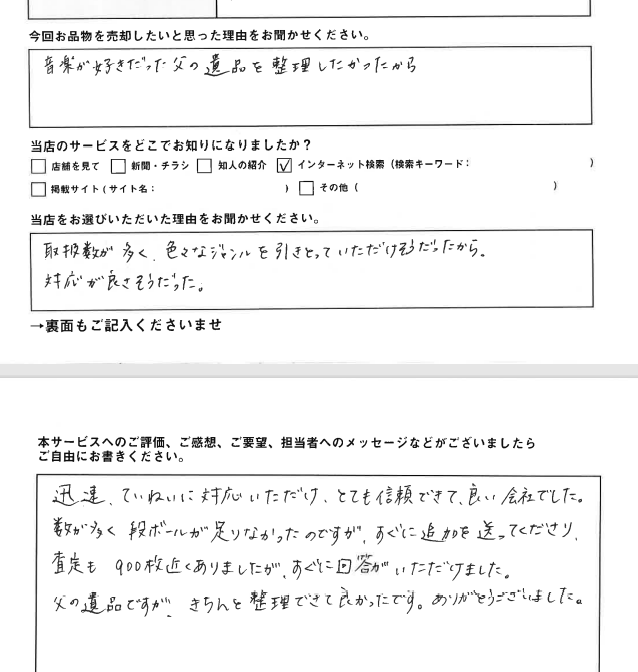 今回お品物を売却したいと思った理由をお聞かせください。
音楽が好きだった父の遺品を整理したかったから
当店のサービスをどこでお知りになりましたか？
□ 店舗を見て □ 新聞・チラシ □ 知人の紹介 ☑ インターネット検索（検索キーワード： ）
□ 掲載サイト（サイト名： ） □ その他（ ）
当店をお選びいただいた理由をお聞かせください。
取扱数が多く、色々なジャンルを引きとっていただけそうだったから。
対応が良さそうだった。
→裏面もご記入くださいませ
本サービスへのご評価、ご感想、ご要望、担当者へのメッセージなどがございましたら
ご自由にお書きください。
迅速、ていねいに対応いただけ、とても信頼できて、良い会社でした。
数が多く段ボールが足りなかったのですが、すぐに追加を送ってくださり、
査定も900枚近くありましたが、すぐに回答がいただけました。
父の遺品ですが、きちんと整理できて良かったです。ありがとうございました。